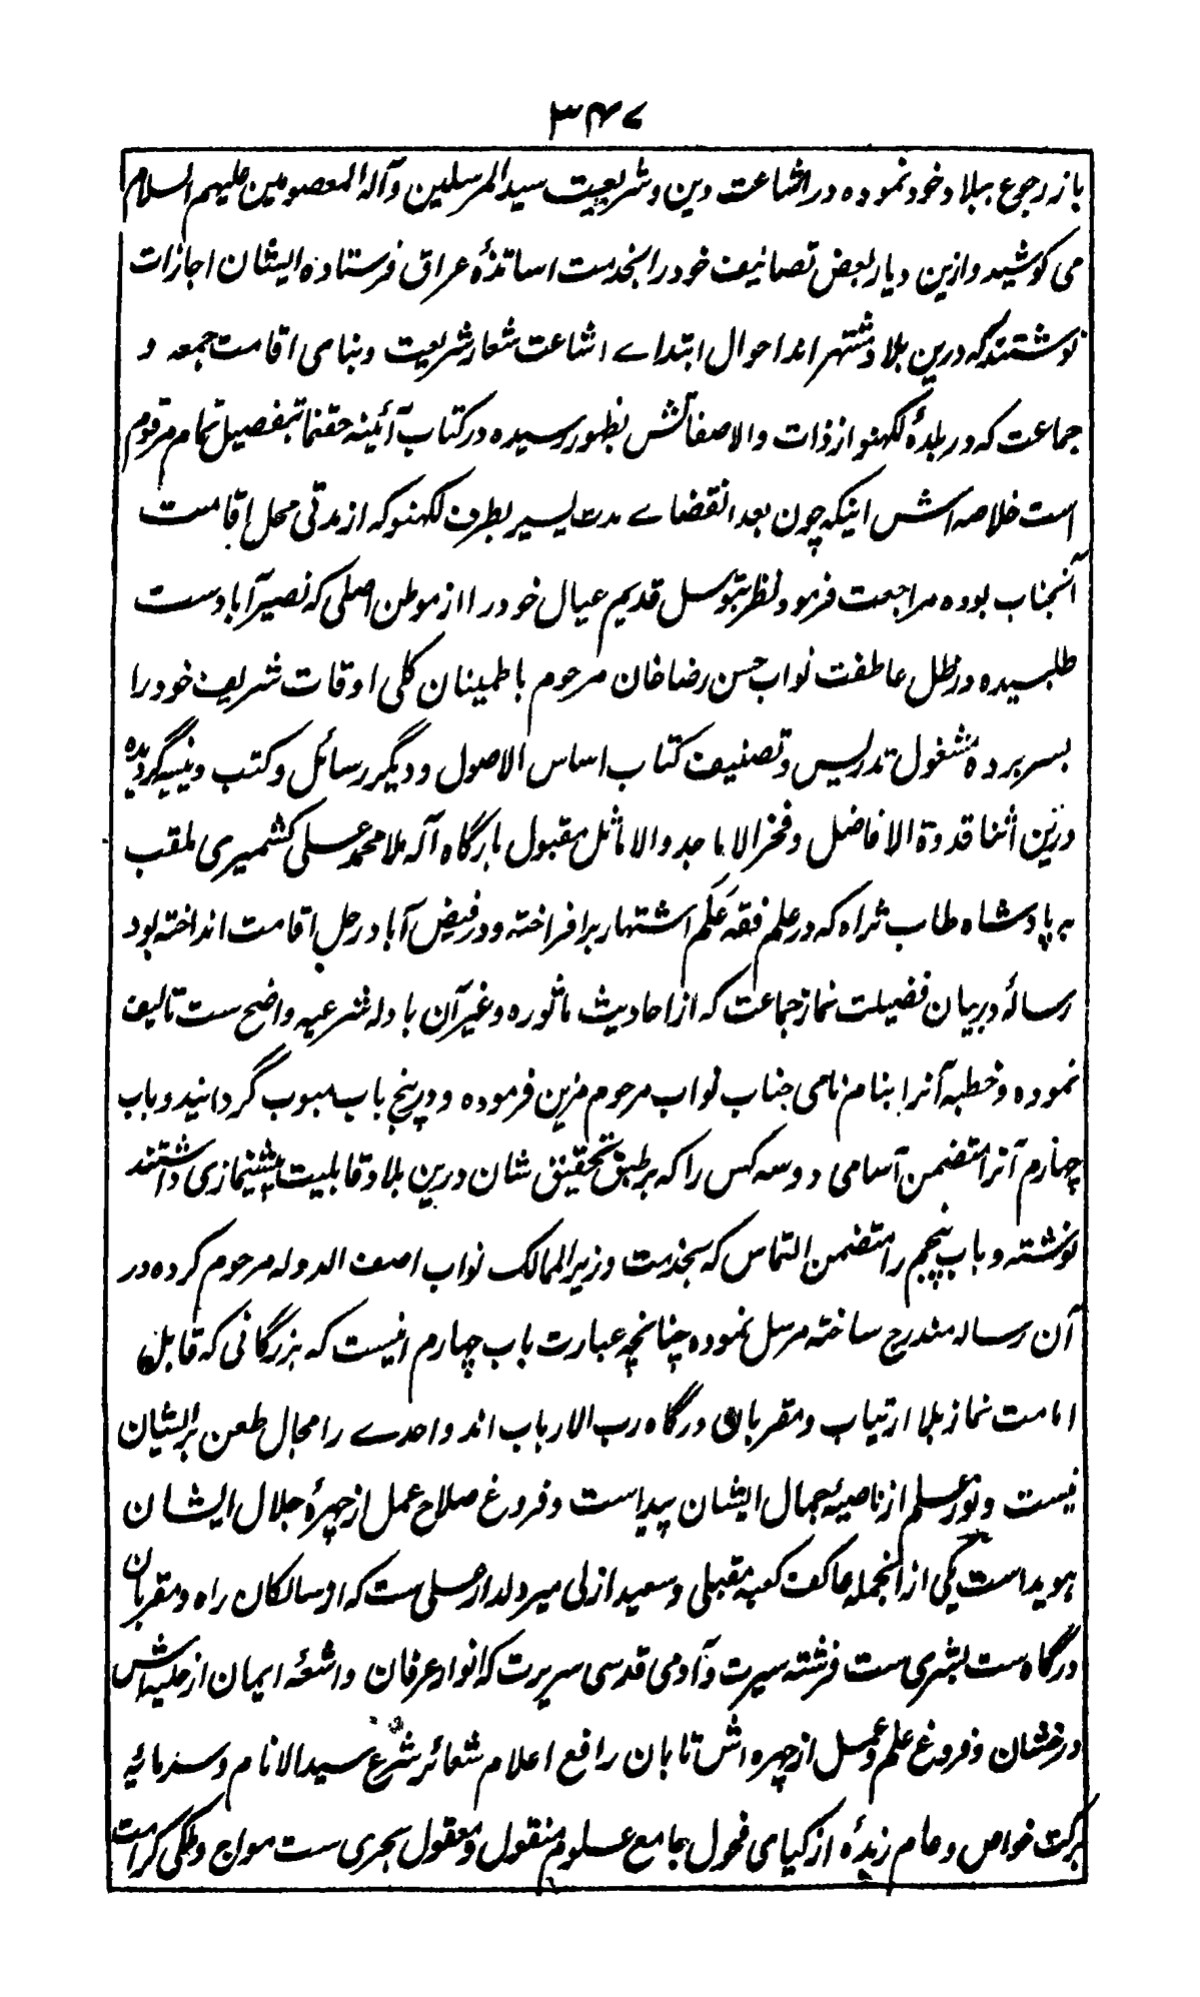 ۳۴۷
باز رجوع ببلاد خود نموده در اشاعت دین و شریعت سید المرسلین وآله المعصومین علیهم السلام
می کوشید و ازین دیار بعض تصانیف خود را بخدمت اساتذهٔ عراق فرستاده ایشان اجازات
نوشتند که درین بلاد مشتهر اند احوال ابتداے اشاعت شعار شریعت و بنای اقامت جمعه و
جماعت که در بلدهٔ لکهنو از ذات والا صفاتش بظهور رسیده در کتاب آئینه حقنما بتفصیل تمام مرقوم
است خلاصه اش اینکه چون بعد انقضاے مدت یسیر بطرف لکهنو که از مدتی محل اقامت
آنجناب بوده مراجعت فرمود نظر بتوسل قدیم عیال خود را از موطن اصلی که نصیرآبادست
طلبیده در ظل عاطفت نواب حسن رضا خان مرحوم باطمینان کلی اوقات شریف خود را
بسر برده مشغول تدریس و تصنیف کتاب اساس الاصول و دیگر رسائل و کتب دینیه گردیده
درین اثنا قدوة الافاضل و فخر الاماجد والاماثل مقبول بارگاه آله ملا محمد علی کشمیری ملقب
به پادشاه طاب ثراه که در علم فقه عَلَم اشتهار برافراخته و در فیض آباد رحل اقامت انداخته بود
رسالهٔ در بیان فضیلت نماز جماعت که از احادیث ماثوره و غیر آن بادله شرعیه واضح ست تالیف
نموده و خطبه آنرا بنام نامی جناب نواب مرحوم مزین فرموده و در پنج باب مبوب گردانید و باب
چهارم آنرا متضمن آسامی دو سه کس را که بر طبق تحقیق شان درین بلاد قابلیت پیشنمازی داشتند
نوشته و باب پنجم را متضمن التماس که بخدمت وزیر الممالک نواب اصف الدوله مرحوم کرده در
آن رساله مندرج ساخته مرسل نموده چنانچه عبارت باب چهارم اینست که بزرگانی که قابل
امامت نماز بلا ارتیاب و مقربان درگاه رب الارباب اند و احدے را مجال طعن بر ایشان
نیست و نور علم از ناصیهٔ جمال ایشان پیداست و فروغ صلاح عمل از چهرهٔ جلال ایشان
هویداست یکی از انجمله عاکف کعبه مقبلی و سعید ازلی میر دلدار علی ست که از سالکان راه و مقربان
درگاه ست بشری ست فرشته سیرت و آدمی قدسی سریرت که انوار عرفان و اشعهٔ ایمان از حلیه اش
درخشان و فروغ علم و عمل از چهره اش تابان رافع اعلام شعائر شرع سید الانام و سرمائیه
برکت خواص و عام زبدهٔ ازکیای فحول جامع علوم منقول و معقول بحری ست مواج و فلکی کرامت